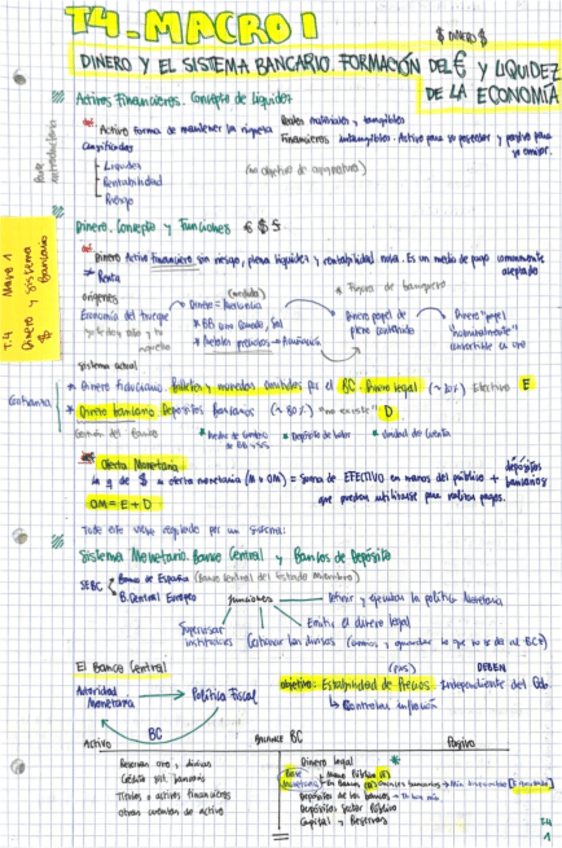 T4. MACRO I
$ DINERO $
DINERO Y EL SISTEMA BANCARIO. FORMACIÓN DEL € Y LIQUIDEZ
DE LA ECONOMÍA
Activos Financieros. Concepto de Liquidez
Parte introductoria
def. Activo forma de mantener la riqueza
Reales materiales y tangibles
Financieros intangibles. Activo para su poseedor y pasivo para
su emisor.
Liquidez
Rentabilidad
Riesgo
(no objetivo de asignatura)
Dinero. Concepto y Funciones € $ S
def. Dinero Activo financiero sin riesgo, plena liquidez y rentabilidad nula. Es un medio de pago comúnmente
aceptado
≠ Renta
T.4 Macro 1
Dinero y sistema
$ Bancario
orígenes
Economía del trueque
Dinero = Mercancía
* BB como Ganado, Sal
* Metales preciosos → Acuñación
* Figura de banquero
Dinero papel de
pleno contenido
Dinero "papel
"nominalmente"
convertible en oro
Sistema actual
* Dinero fiduciario. Billetes y monedas emitidos por el BC. Dinero legal (~20%) Efectivo E
* Dinero bancario. Depósitos Bancarios (~80%) "no existe" D
* Medio de Cambio
de BB y SS
* Depósito de Valor
* Unidad de Cuenta
def Oferta Monetaria
la q de $ u oferta monetaria (M u OM) = Suma de EFECTIVO en manos del público + depósitos
bancarios
que puedan utilizarse para realizar pagos.
OM = E + D
Todo este viene regulado por un sistema:
Sistema Monetario. Banco Central y Bancos de Depósito
SEBC
Banco de España (Banco Central del Estado Miembro)
B. Central Europeo
funciones
Definir y ejecutar la política Monetaria
Emitir el dinero legal
Supervisar
instituciones
Gestionar las divisas
El Banco Central
Autoridad
Monetaria → Política Fiscal
BC
DEBEN
objetivo: Estabilidad de Precios. Independiente del Gob.
↳ Controlar inflación
Activo
BALANCE BC
Pasivo
Reservas oro y divisas
Crédito sist. bancario
Títulos o activos financieros
Otras cuentas de activo
Dinero legal *
Base
Monetaria
Mano Público (E)
Depósitos de los bancos
Depósitos Sector Público
Capital y Reservas
T4
1